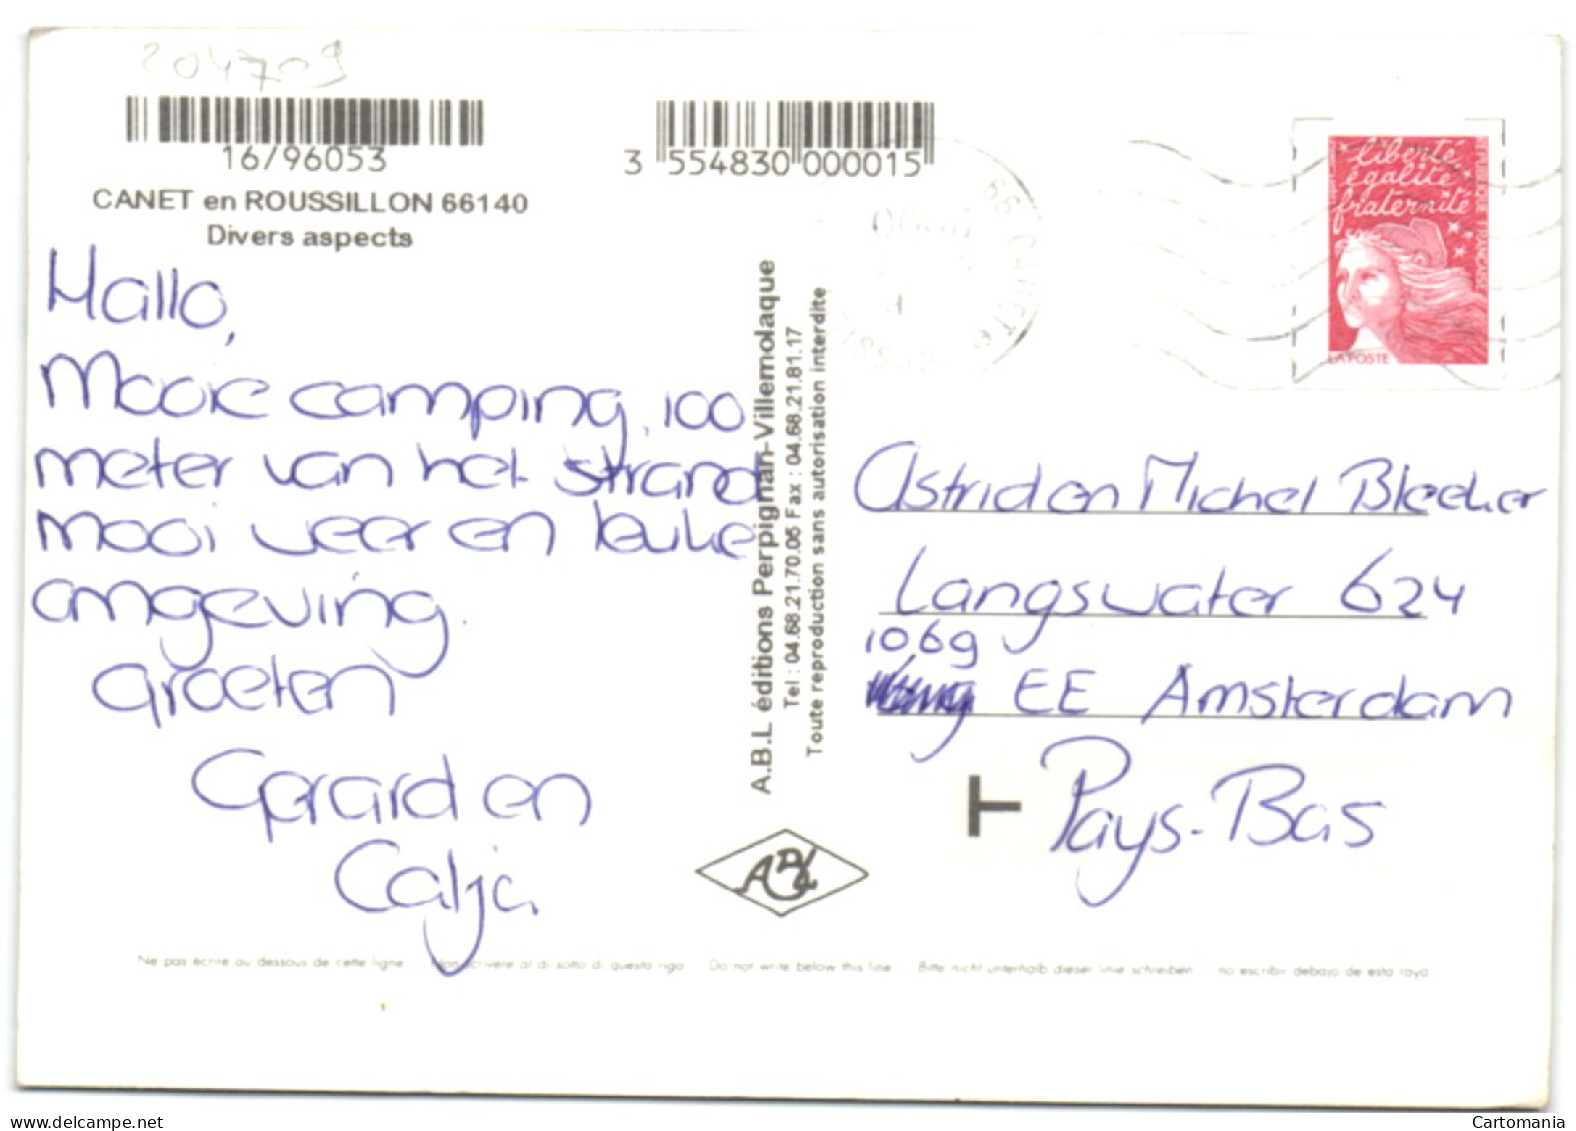 204709
16/96053
3 554830 000015
CANET en ROUSSILLON 66140
Divers aspects
Hallo,
Mooie camping, 100
meter van het strand
mooi weer en leuke
omgeving.
Groeten
Gerard en
A.B.L éditions Perpignan-Villemolaque
Tel : 04.68.21.70.05 Fax : 04.68.21.81.17
Toute reproduction sans autorisation interdite
liberté
égalité
fraternité
REPUBLIQUE FRANÇAISE
LA POSTE
Astrid en Michel Bleeker
Langswater 624
1069
EE Amsterdam
T Pays-Bas
ABL
Ne pas écrire au dessous de cette ligne Non scrivere al di sotto di questa riga Do not write below this line Bitte nicht unterhalb dieser linie schreiben no escribir debajo de esta raya
Cartomania